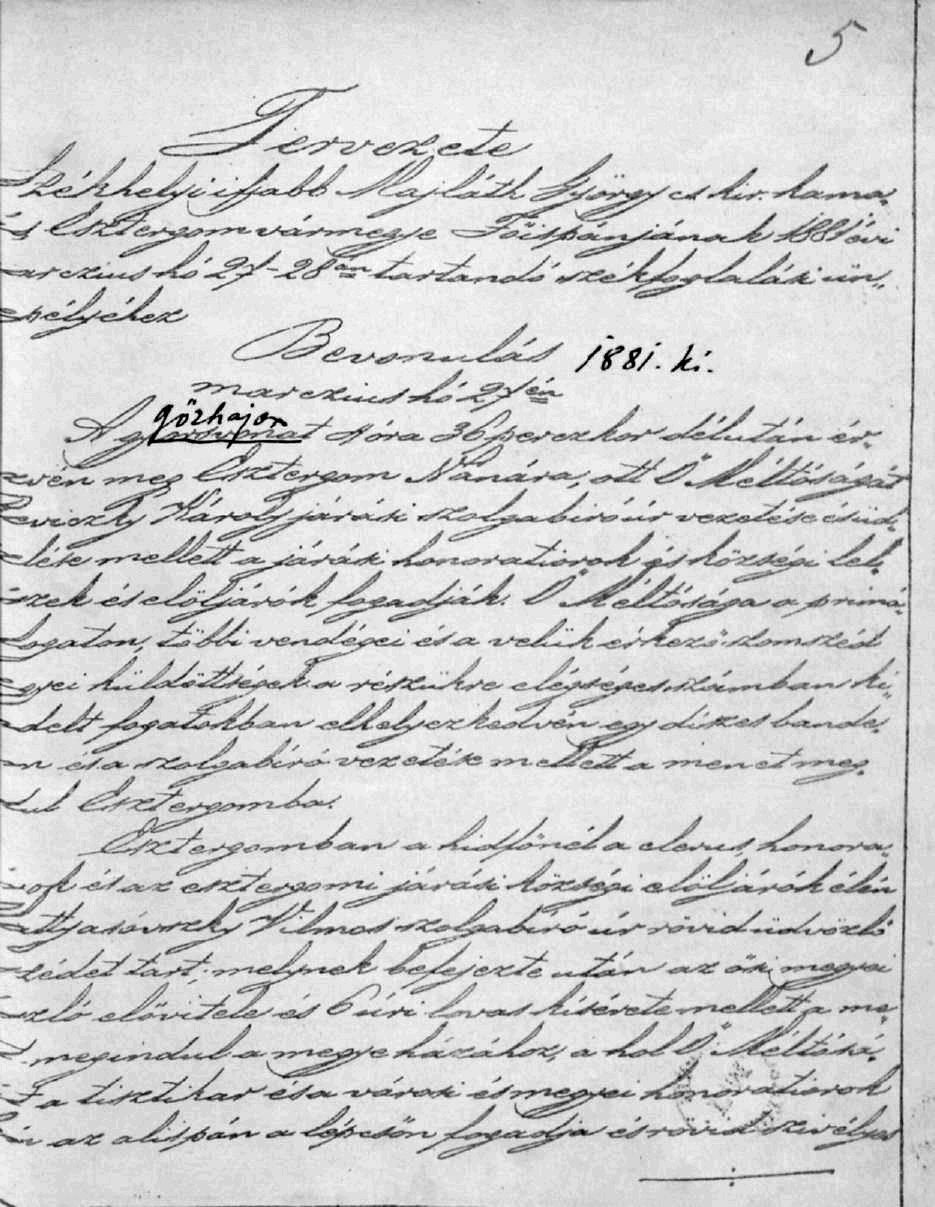 5
Tervezete
Székhelyi ifjabb Majláth György cs kir. kama,
és Esztergom vármegye Főispánjának 1881 évi
arczius hó 27-28án tartandó székfoglalási ün,,
epélyéhez
Bevonulás 1881. ki.
marczius hó 27én
gőzhajon
A gy t 4 óra 36 perczkor délután ér,
zvén meg Esztergom Nánára, ott Ő Méltóságát
eviczky Károly járási szolgabiró úr vezetése és üd,
lése mellett a járási honoratiorok és községi lel,
szek és elöljárók fogadják. Ő Méltósága a primá,
fogaton, többi vendégei és a velük érkező szomszéd
gyei küldöttségek a részükre elégséges számban ki,,
delt fogatokban elhelyezkedvén egy díszes bande,
n és a szolgabíró vezetése mellett a menet meg,
dul Esztergomba.
Esztergomban a hidfőnél a clerus, honora,
rok és az esztergomi járási községi elöljárók élén
attyasóvszky Vilmos szolgabíró úr rövid üdvözlő
zédet tart, melynek befejezte után az ősi megyei
szló elővitele és 6 úri lovas kísérete mellett a me,
t megindul a megye házához, a hol Ő Méltósá,
t a tisztikar és a városi és megyei honoratiorok
én az alispán a lépcsőn fogadja és rövid szivélyes